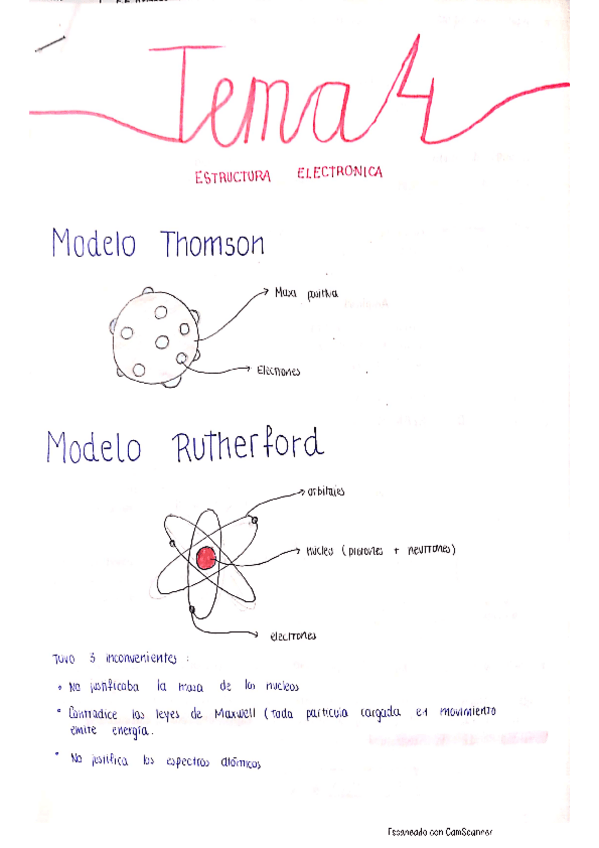 Tema 4
ESTRUCTURA ELECTRONICA
Modelo Thomson
Masa positiva
Electrones
Modelo Rutherford
orbitales
nucleo (protones + neutrones)
electrones
TUVO 3 inconvenientes :
• No justificaba la masa de los nucleos
• Contradice las leyes de Maxwell (Toda particula cargada en movimiento
emite energía.
• No justifica los espectros atómicos
Escaneado con CamScanner